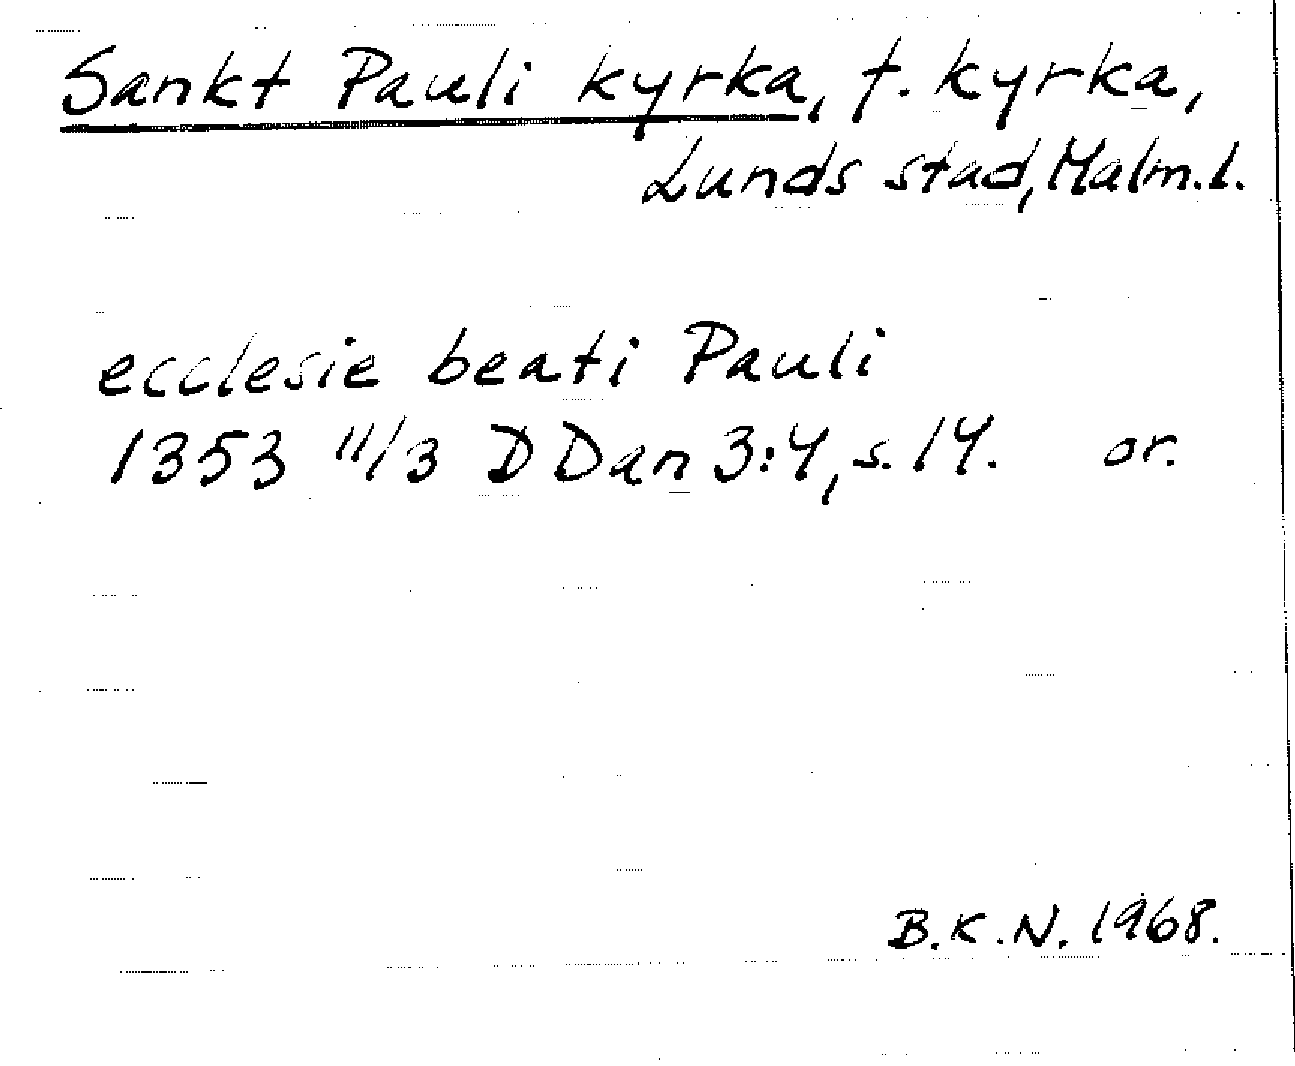 Sankt Pauli kyrka, f. kyrka,
Lunds stad, Malm. l.
ecclesie beati Pauli
1353 11/3 DDan 3:4, s. 14. or.
B.K.N. 1968.